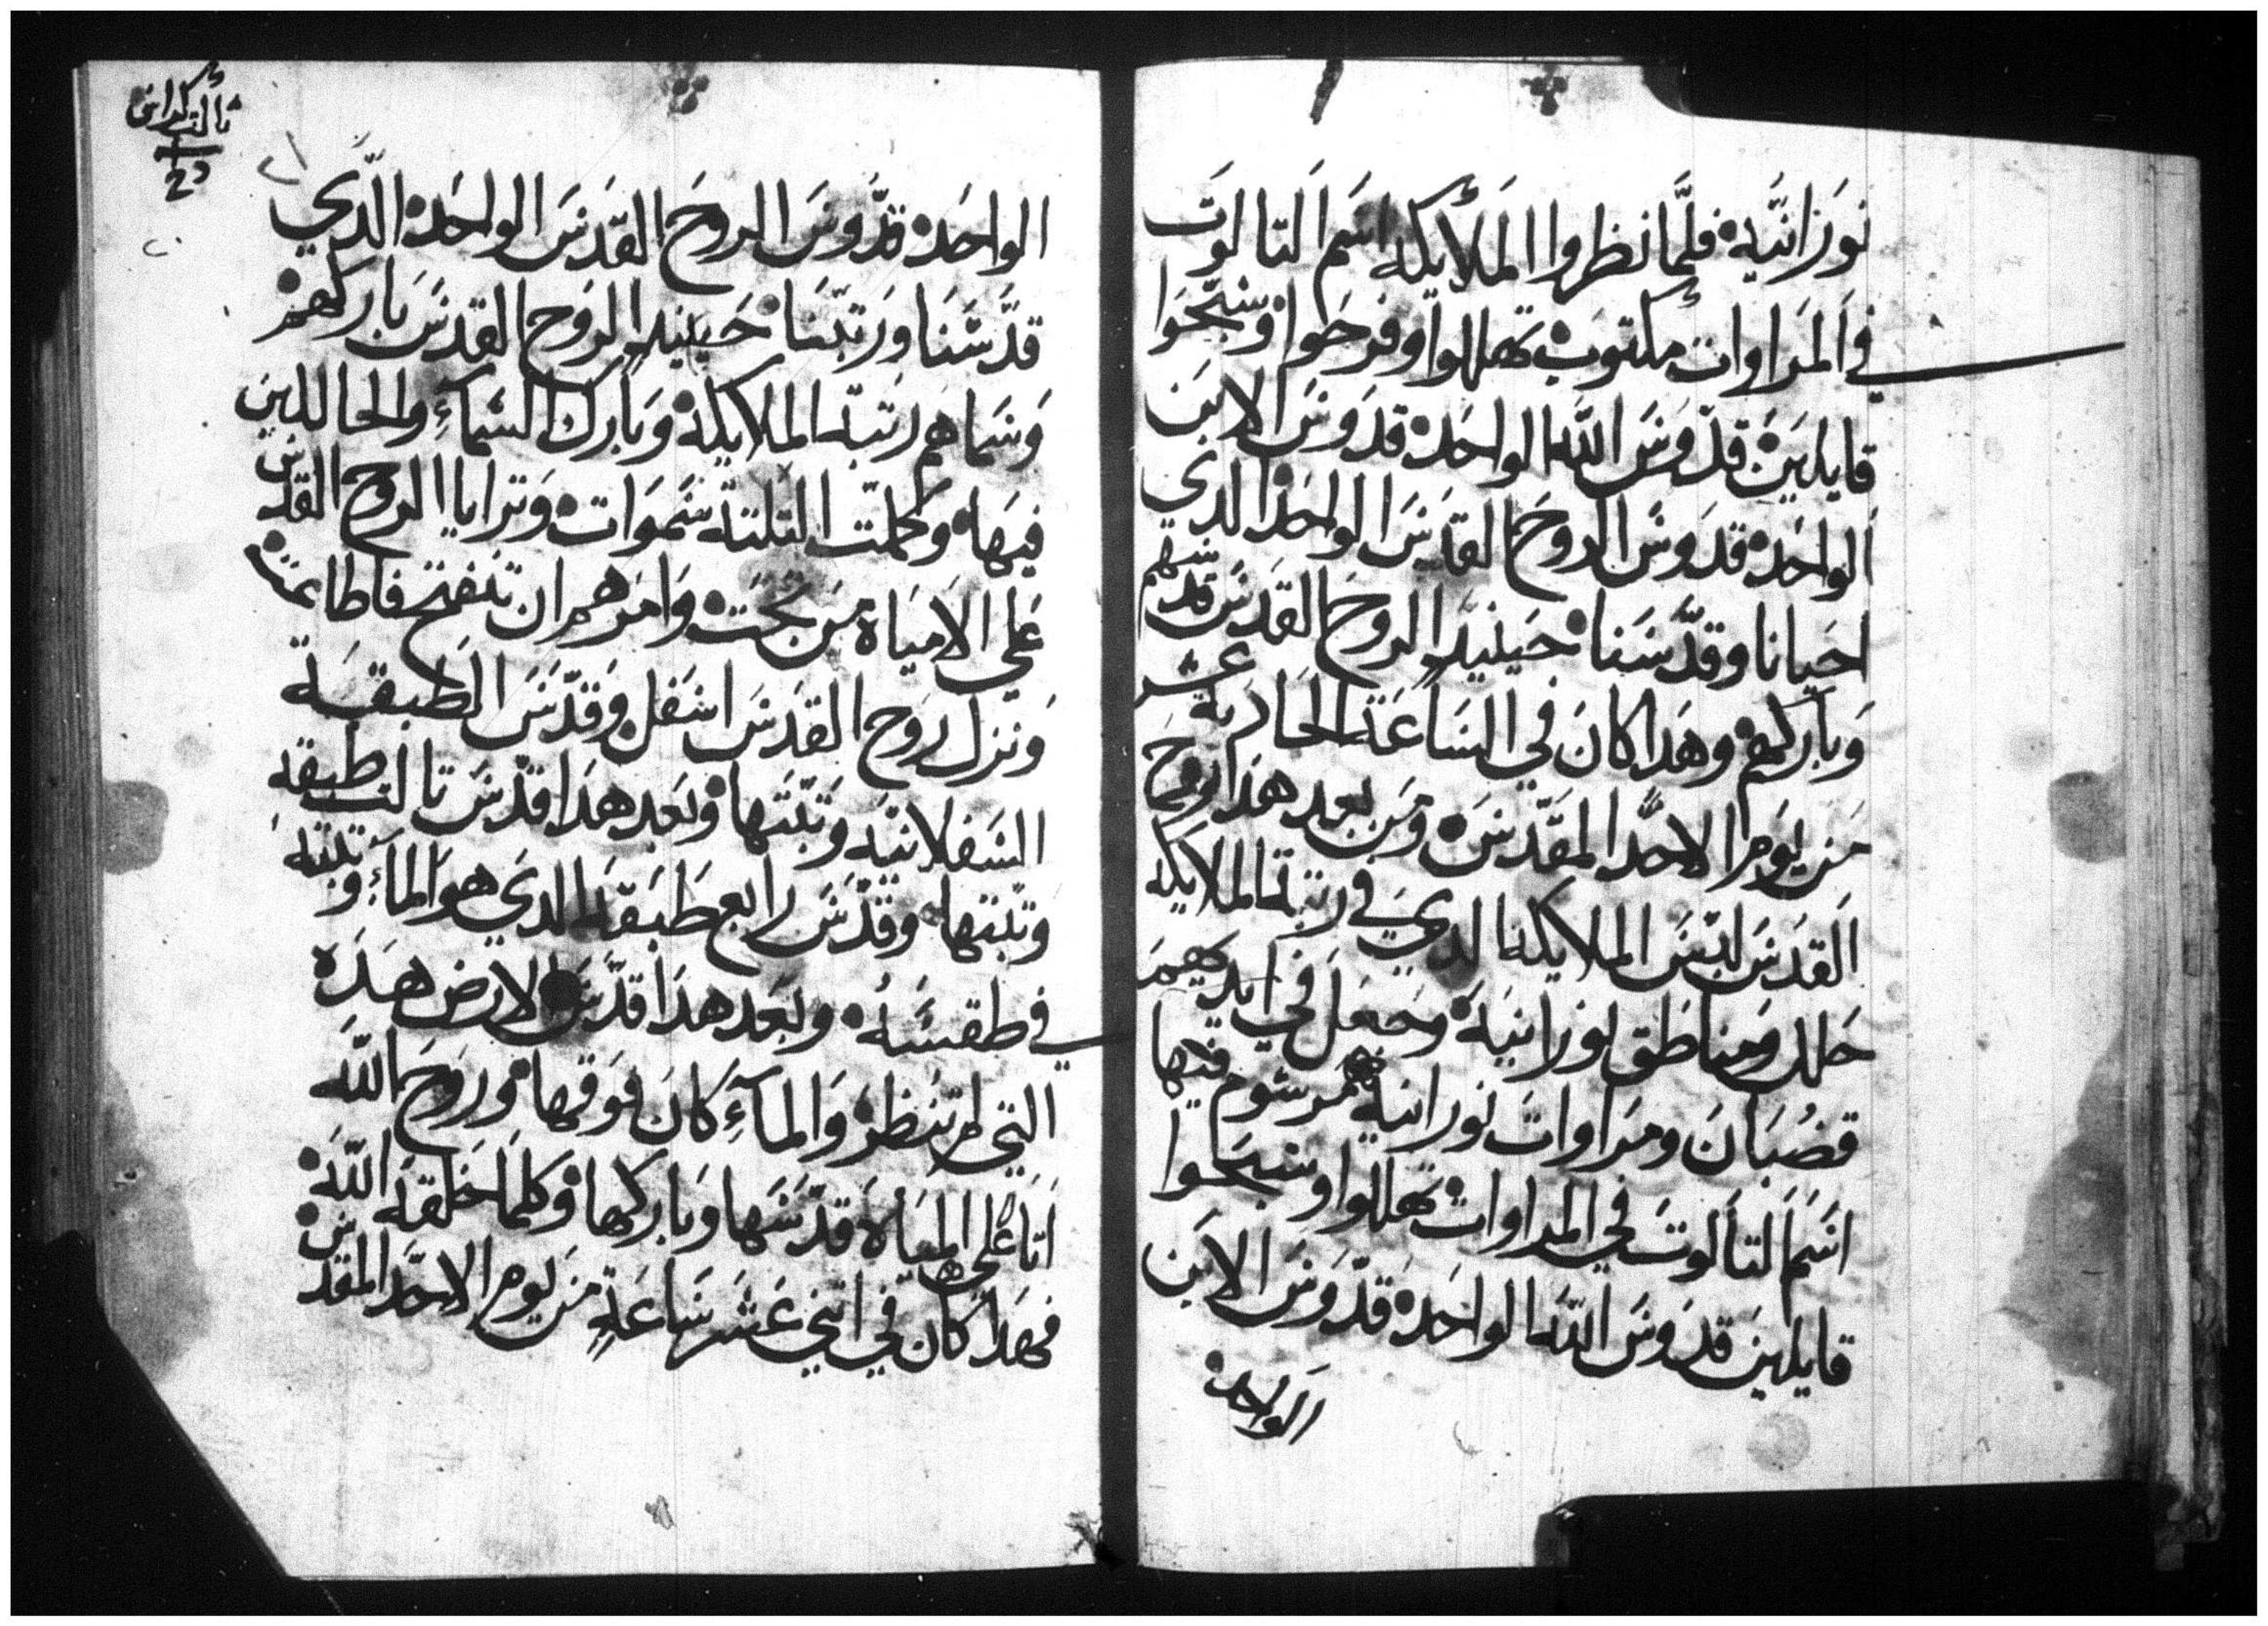 نورانيه فلما نظروا الملايكه اسم التالوت
في المراوات مكتوب تهللوا وفرحوا وسبحوا
قايلين قدوس الله الواحد قدوس الابن
الواحد قدوس الروح القدس الواحد الدي
احيانا وقدسنا حينيد الروح القدس قدسهم
وباركهم وهدا كان في الساعة الحادية عشر
من يوم الاحد المقدس ومن بعد هدا روح
القدس لبس الملايكه الدي في رتبة الملايكه
حلل ومناطق نورانيه وجعل في ايديهم
قضبان ومراوات نورانية مرسوم فيها
اسم التالوت في المراوات تهللوا وسبحوا
قايلين قدوس الله الواحد قدوس الابن
الواحد
تالت كراس
الواحد قدوس الروح القدس الواحد الدي
قدسنا ورتبنا حينيد الروح القدس باركهم
وسماهم رتبة الملايكة وبارك السماء والحالدين
فيها وكملت التلتة سموات وترايا الروح القدس
علي الامياه من تحت وامرهم ان تنفتح فاطاعته
ونزل روح القدس اسفل وقدس الطبقة
السفلانيه وتبتها وبعد هدا قدس تالت طبقة
وتبتها وقدس رابع طبقة الدي هو الماء وتبته
في طقسه وبعد هدا قدس الارض هده
التي لم تنظر والماء كان فوقها وروح الله
اتا علي المياة قدسها وباركها وكلما خلقه الله
فهدا كان في اتني عشر ساعة من يوم الاحد المقدس